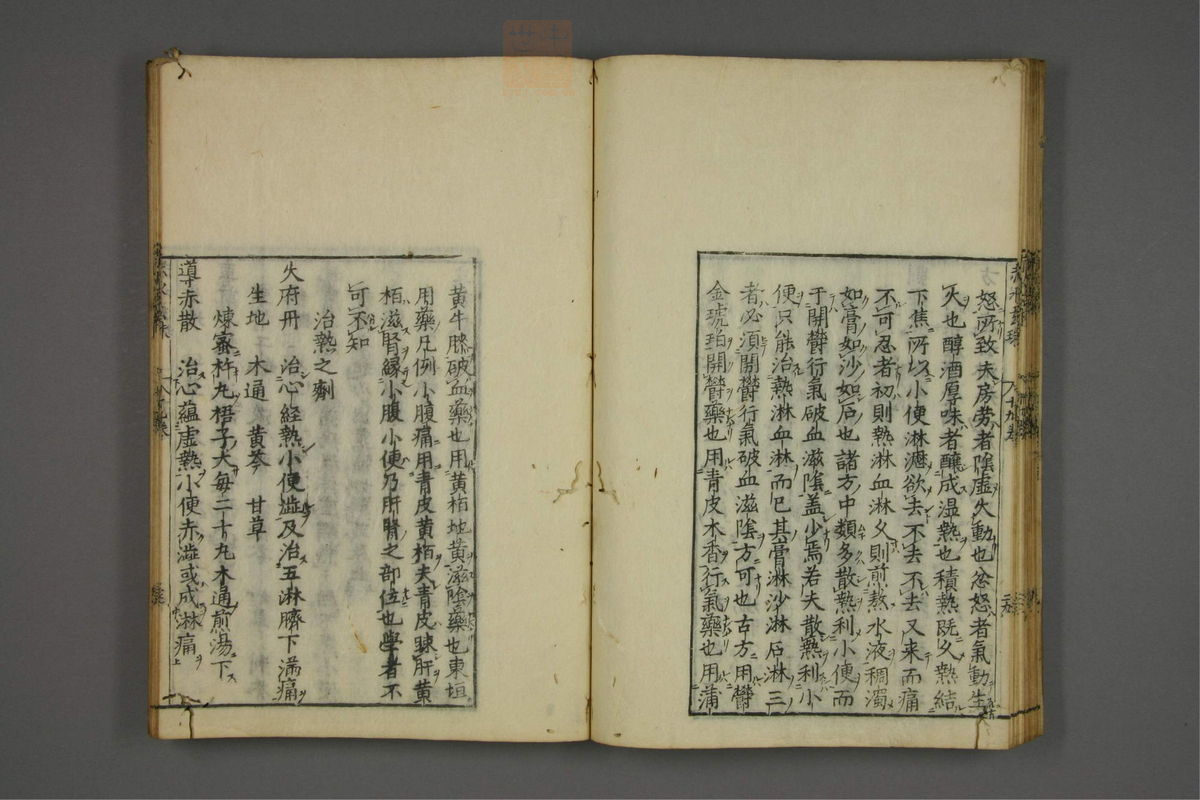 怒所致夫房劳者陰虚火動也忿怒者氣動生
火也醇酒厚味者釀成湿熱也積熱既久熱結
下焦所以小便淋瀝欲去不去不去又来而痛
不可忍者初則熱淋血淋久則煎熬水液稠濁
如膏如沙如石也諸方中類多散熱利小便而
于開欝行氣破血滋陰盖少焉若夫散熱利小
便只能治熱淋血淋而已其膏淋沙淋石淋三
者必須開欝行氣破血滋陰方可也古方用欝
金琥珀開欝藥也用青皮木香行氣藥也用蒲
黄牛膝破血藥也用黄栢地黄滋陰藥也東垣
用藥凡例小腹痛用青皮黄栢夫青皮疎肝黄
栢滋腎縁小腹小便乃肝腎之部位也學者不
可不知
治熱之劑
火府丹 治心経熱小便澁及治五淋臍下満痛
生地 木通 黄芩 甘草
煉蜜杵丸梧子大每二十九木通煎湯下
導赤散 治心蘊虚熱小便赤澁或成淋痛